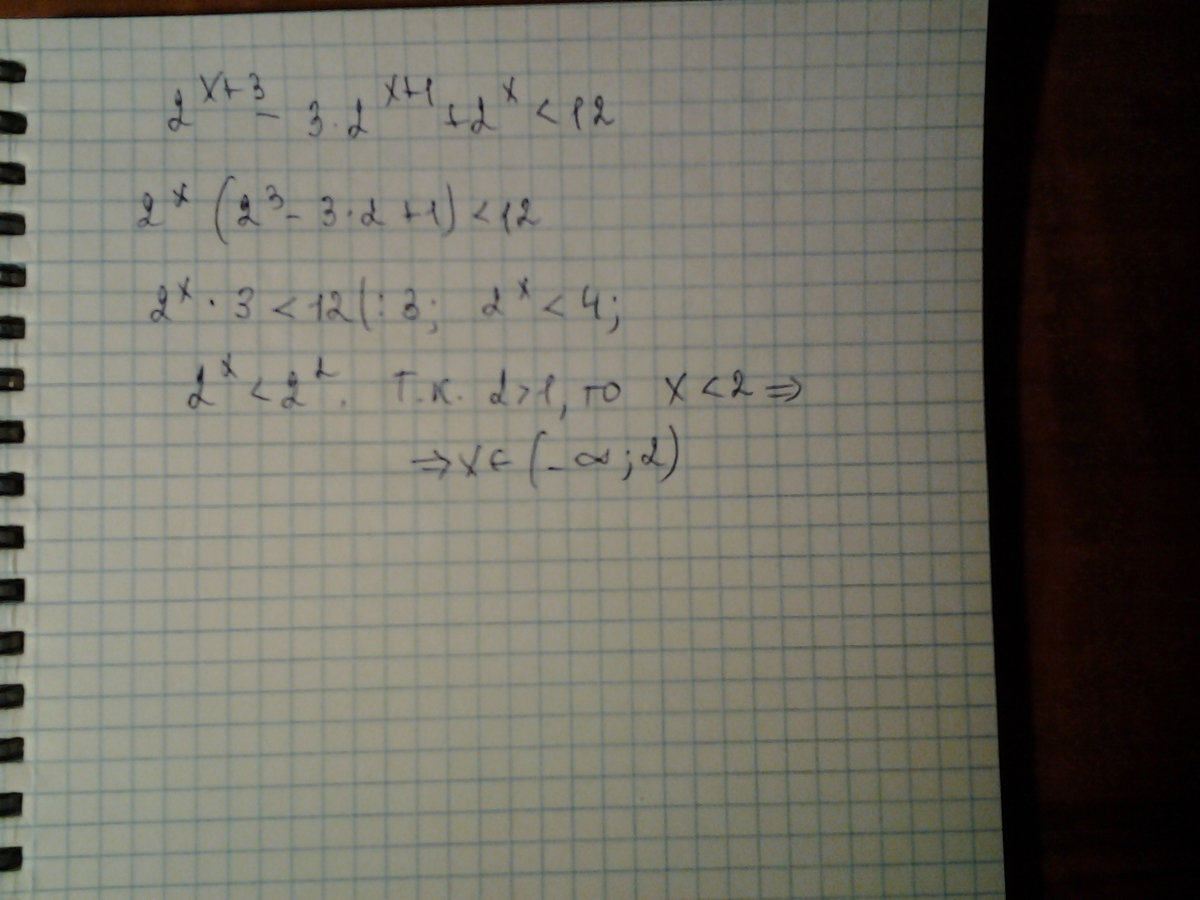 2^(x+3) - 3·2^(x+1) + 2^x < 12
2^x (2^3 - 3·2 + 1) < 12
2^x · 3 < 12 |: 3; 2^x < 4;
2^x < 2^2. Т.к. 2>1, то x < 2 ⇒
⇒ x ∈ (-∞; 2)